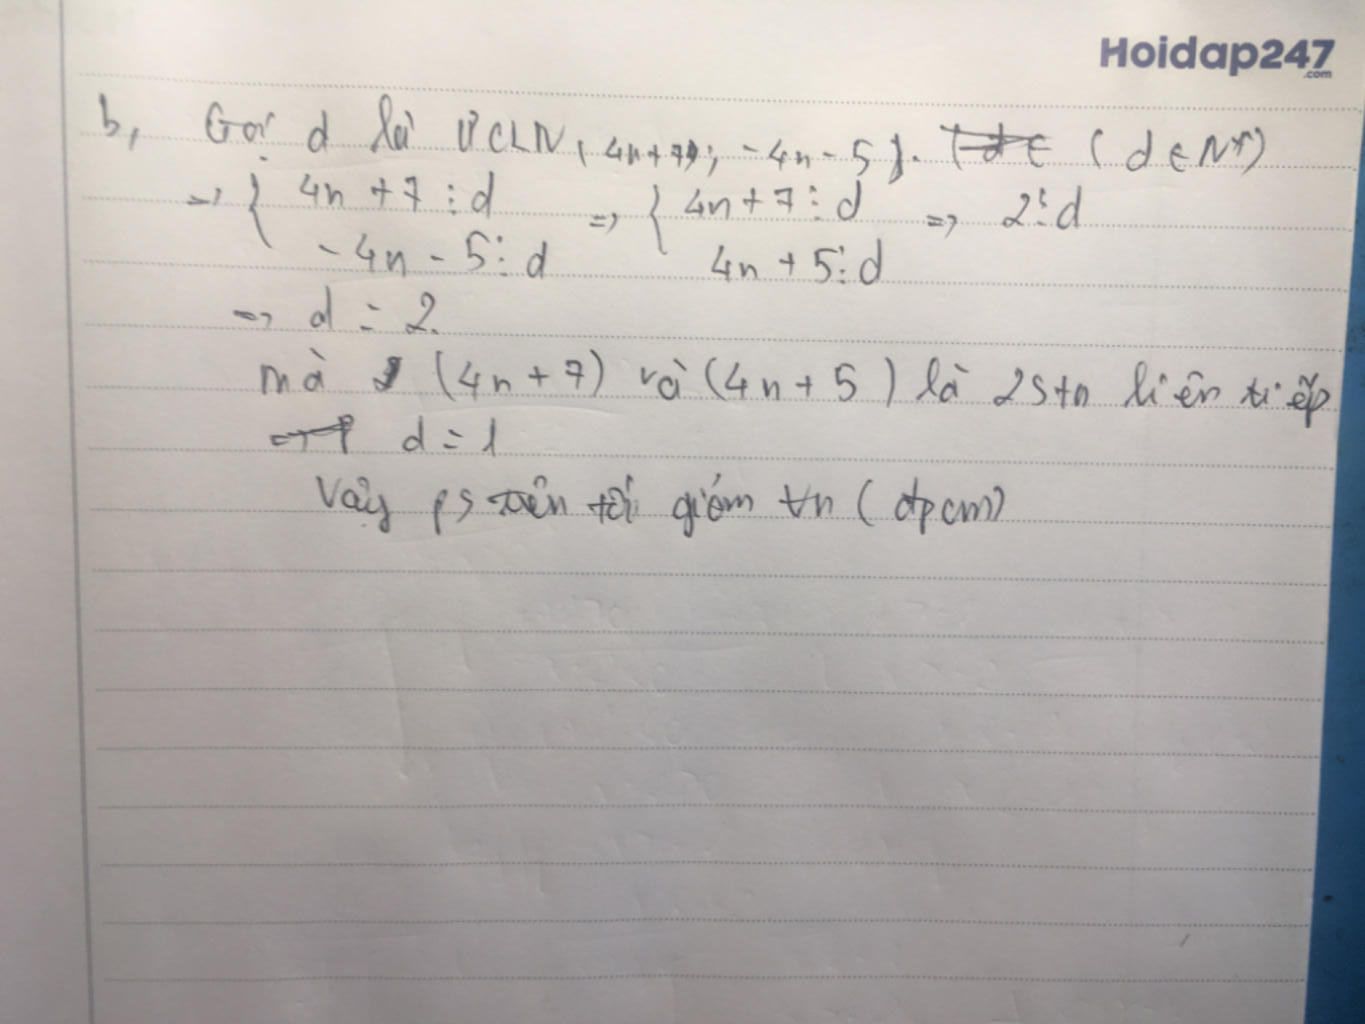 Hoidap247
.com
b, Gọi d là ƯCLN (4n+7); -4n-5). (d∈N*)
=> { 4n+7⋮d => { 4n+7⋮d => 2⋮d
-4n-5⋮d 4n+5⋮d
=> d = 2.
mà (4n+7) và (4n+5) là 2 stn liên tiếp
d=1
Vậy ps trên tối giảm ∀n (đpcm)